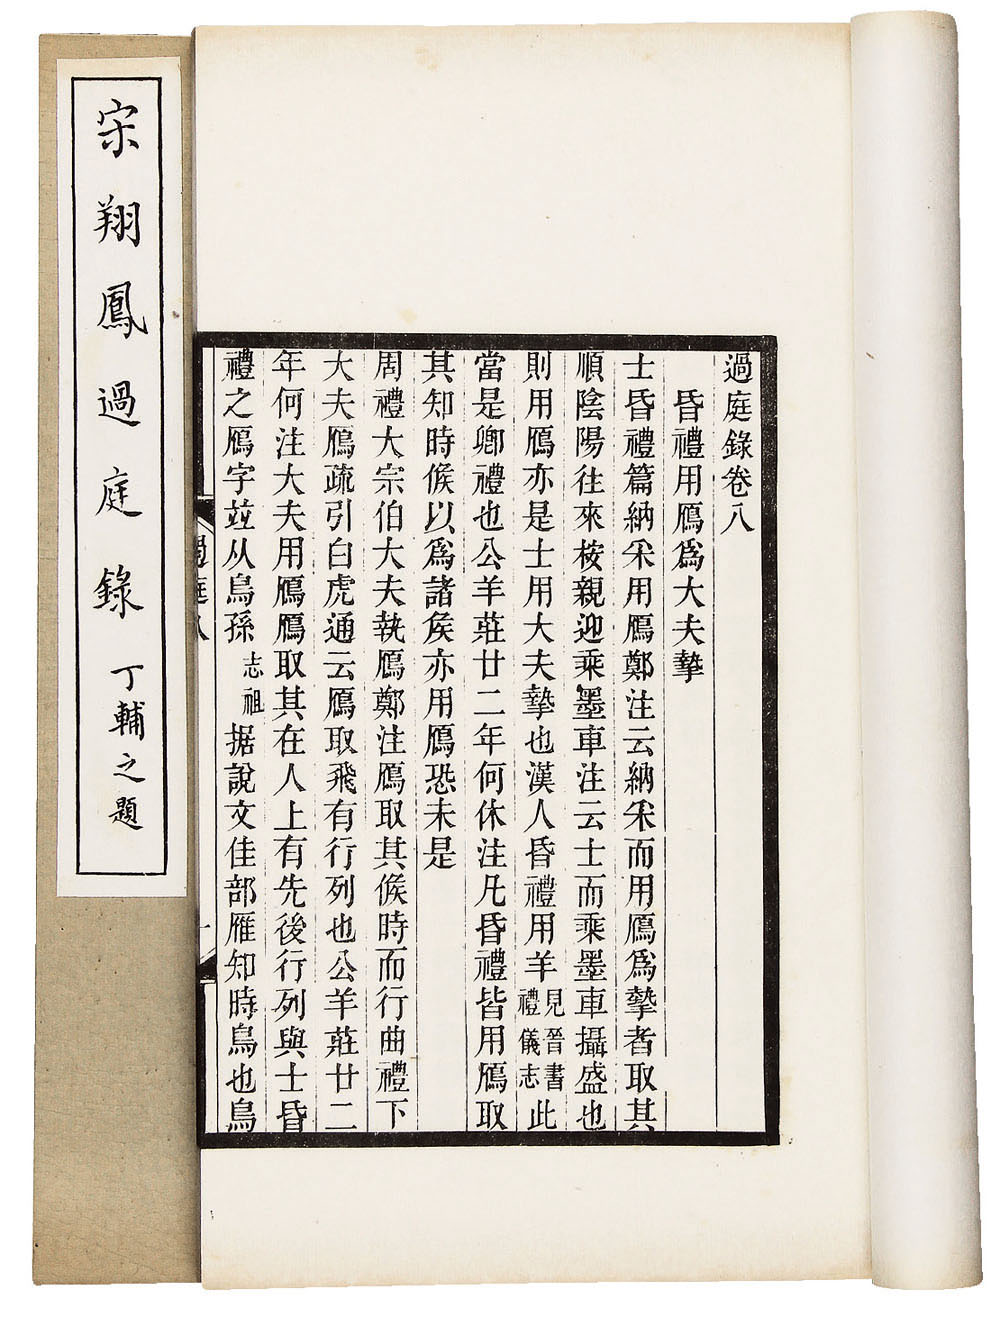 宋翔鳳過庭錄
丁輔之題
過庭錄卷八
昏禮用鴈爲大夫摯
士昏禮篇納采用鴈鄭注云納采而用鴈爲摯者取其
順陰陽往來桉親迎乘墨車注云士而乘墨車攝盛也
則用鴈亦是士用大夫摯也漢人昏禮用羊見晉書禮儀志此
當是卿禮也公羊莊廿二年何休注凡昏禮皆用鴈取
其知時候以爲諸矦亦用鴈恐未是
周禮大宗伯大夫執鴈鄭注鴈取其候時而行曲禮下
大夫鴈疏引白虎通云鴈取飛有行列也公羊莊廿二
年何注大夫用鴈鴈取其在人上有先後行列與士昏
禮之鴈字並从鳥孫志祖据說文佳部雁知時鳥也鳥
過庭八
一